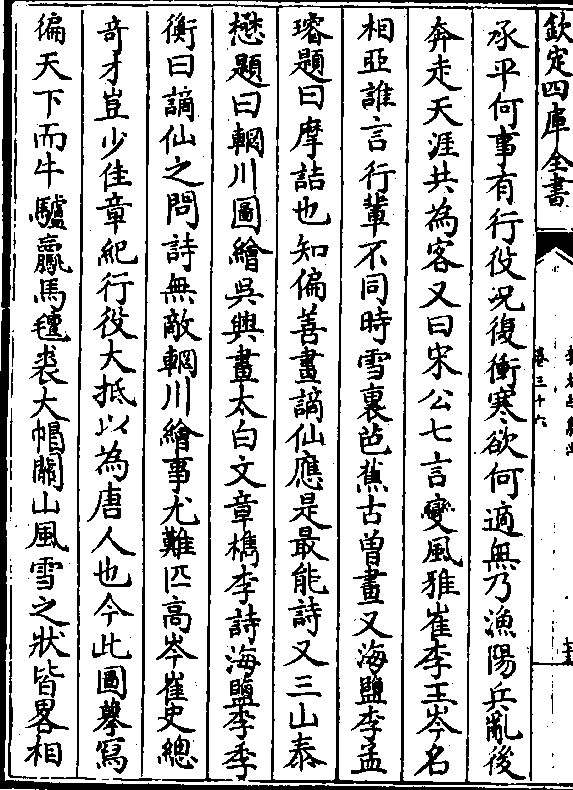 欽定四庫全書
卷三十六
承平何事有行役况復衝寒欲何適無乃漁陽兵亂後
奔走天涯共為客又曰宋公七言變風雅崔李王岑名
相亞誰言行輩不同時雪裏芭蕉古曽畫又海鹽李孟
璿題曰摩詰也知偏善畫謫仙應是最能詩又三山泰
懋題曰輞川圖繪吳興畫太白文章檇李詩海鹽李季
衡曰謫仙之問詩無敵輞川繪事尤難匹髙岑崔史總
奇才豈少佳章紀行役大抵以為唐人也今此圖摹寫
徧天下而牛驢羸馬氊裘大帽關山風雪之狀皆畧相